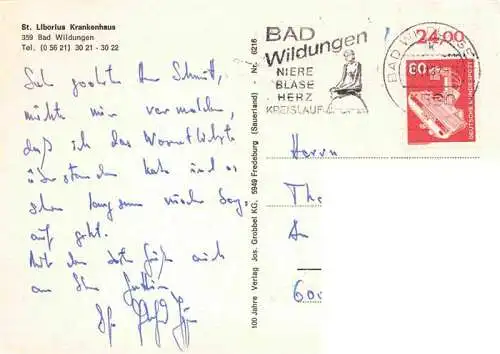 St. Liborius Krankenhaus
359 Bad Wildungen
Tel. (0 56 21) 30 21 - 30 22
Sehr geehrter Herr Schmitt,
möchte mir vermelden,
daß ich das Wesentlichste
überstanden habe und es
schon langsam wieder berg-
auf geht.
Mit den Grüßen auch
an Ihre Gattin
Ihr
100 Jahre Verlag Jos. Grobbel KG, 5949 Fredeburg (Sauerland) Nr. 6216
BAD
Wildungen
NIERE
BLASE
HERZ
KREISLAUF
BAD WILDUNGEN
24.00
80
DEUTSCHE BUNDESPOST
Herrn